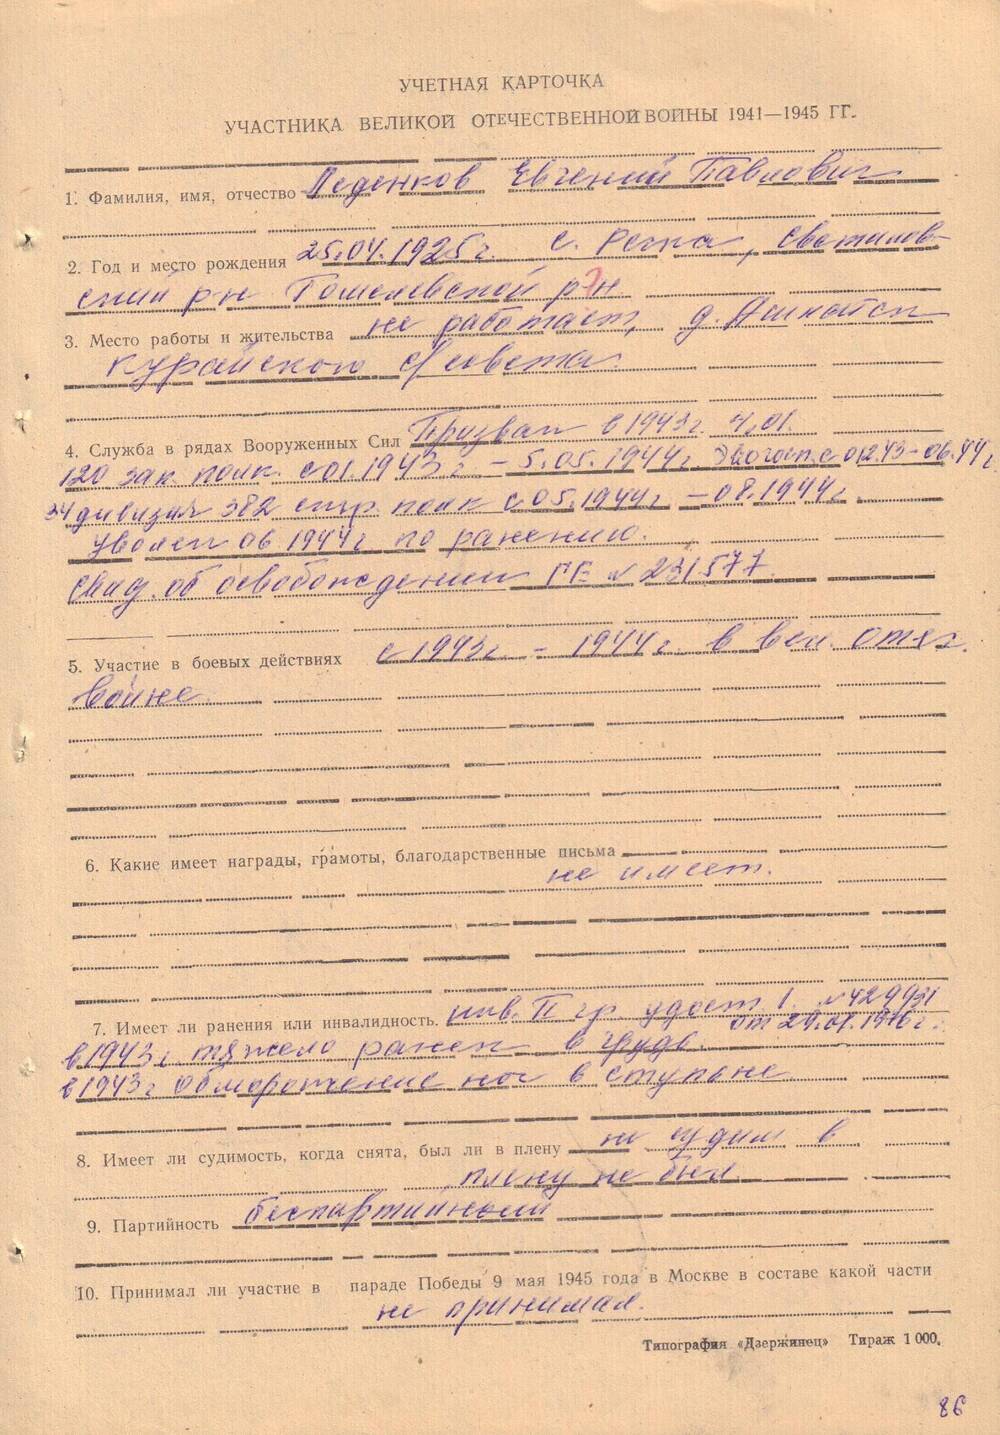 УЧЕТНАЯ КАРТОЧКА
УЧАСТНИКА ВЕЛИКОЙ ОТЕЧЕСТВЕННОЙ ВОЙНЫ 1941—1945 ГГ.
1. Фамилия, имя, отчество Леденков Евгений Павлович
2. Год и место рождения 25.04.1925г. с. Репка, Светилов-
ский р-н Гомелевской р-н
3. Место работы и жительства не работает, д.
курайского с/совета.
4. Служба в рядах Вооруженных Сил Призван в 1943г. 4.01.
120 зап. полк с 01.1943г. – 5.05.1944г. Эвогосп. с 012.43-06.44г
34 дивизия 382 стр. полк с 05.1944г. – 08.1944г.
Уволен 06 1944г. по ранению.
Свид. об освобождении ГЕ № 231577.
5. Участие в боевых действиях с 1943г. - 1944г. в вел. отеч.
войне.
6. Какие имеет награды, грамоты, благодарственные письма
не имеет.
7. Имеет ли ранения или инвалидность. инв. II гр. удост 1. № 429931
от 29.01.1976г.
в 1943г. тяжело ранен в грудь.
в 1943г обморожение ног в ступьне
8. Имеет ли судимость, когда снята, был ли в плену не судим в
плену не был.
9. Партийность беспартийный
10. Принимал ли участие в параде Победы 9 мая 1945 года в Москве в составе какой части
не принимал.
Типография «Дзержинец» Тираж 1 000.
86